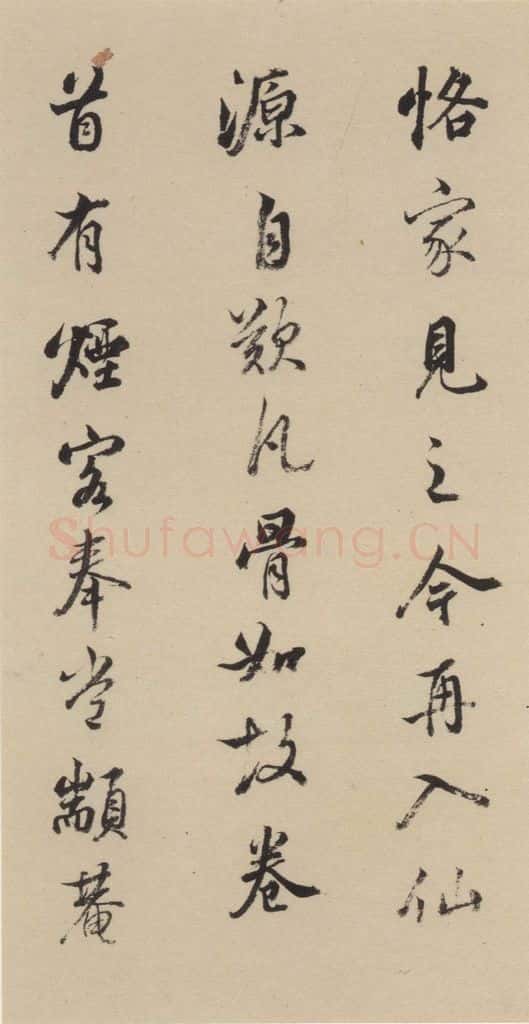 恪家見之今再入仙
源自歎凡骨如故卷
首有煙客奉常顓菴
Shufawang.CN